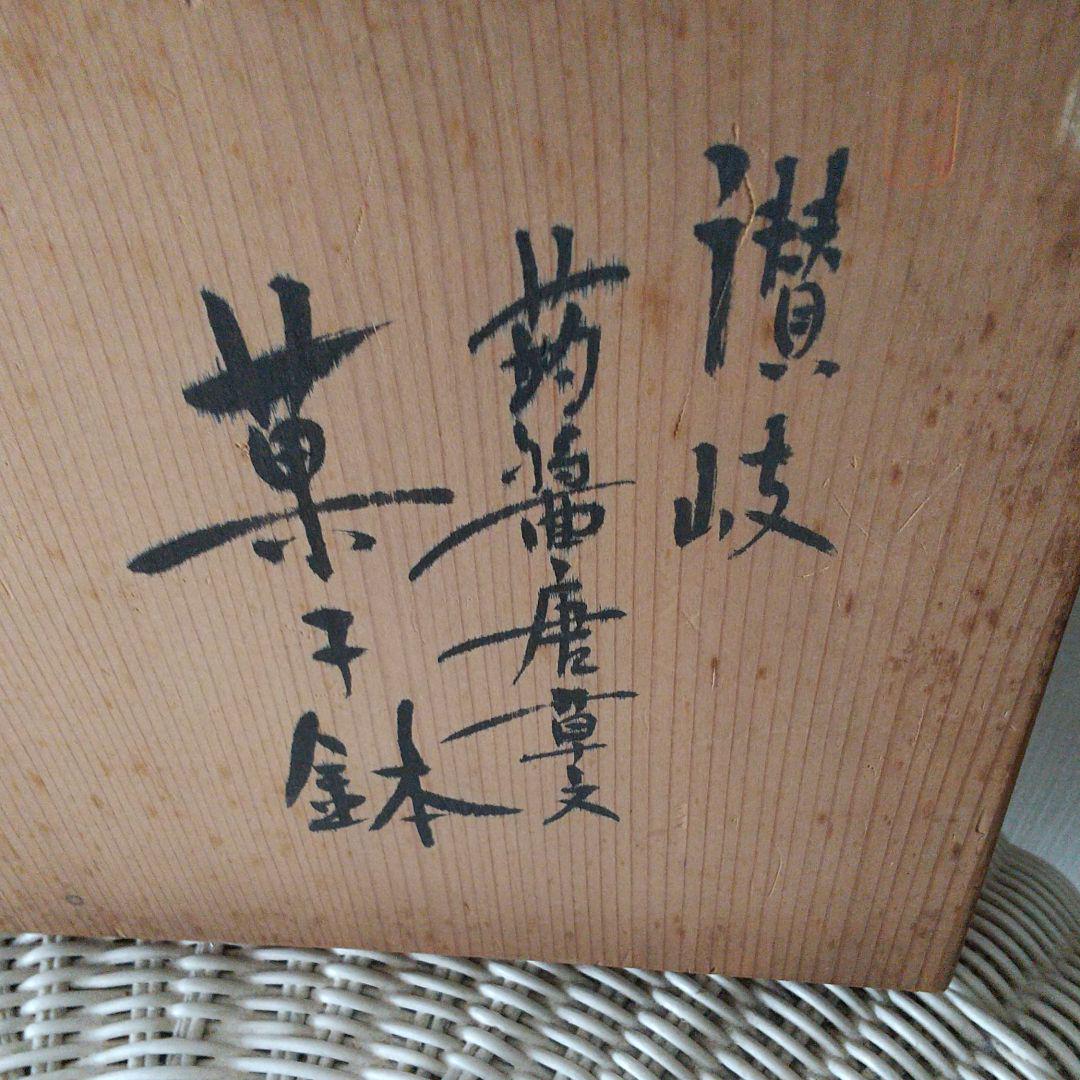 讃岐
蒟醤唐草文
菓子鉢